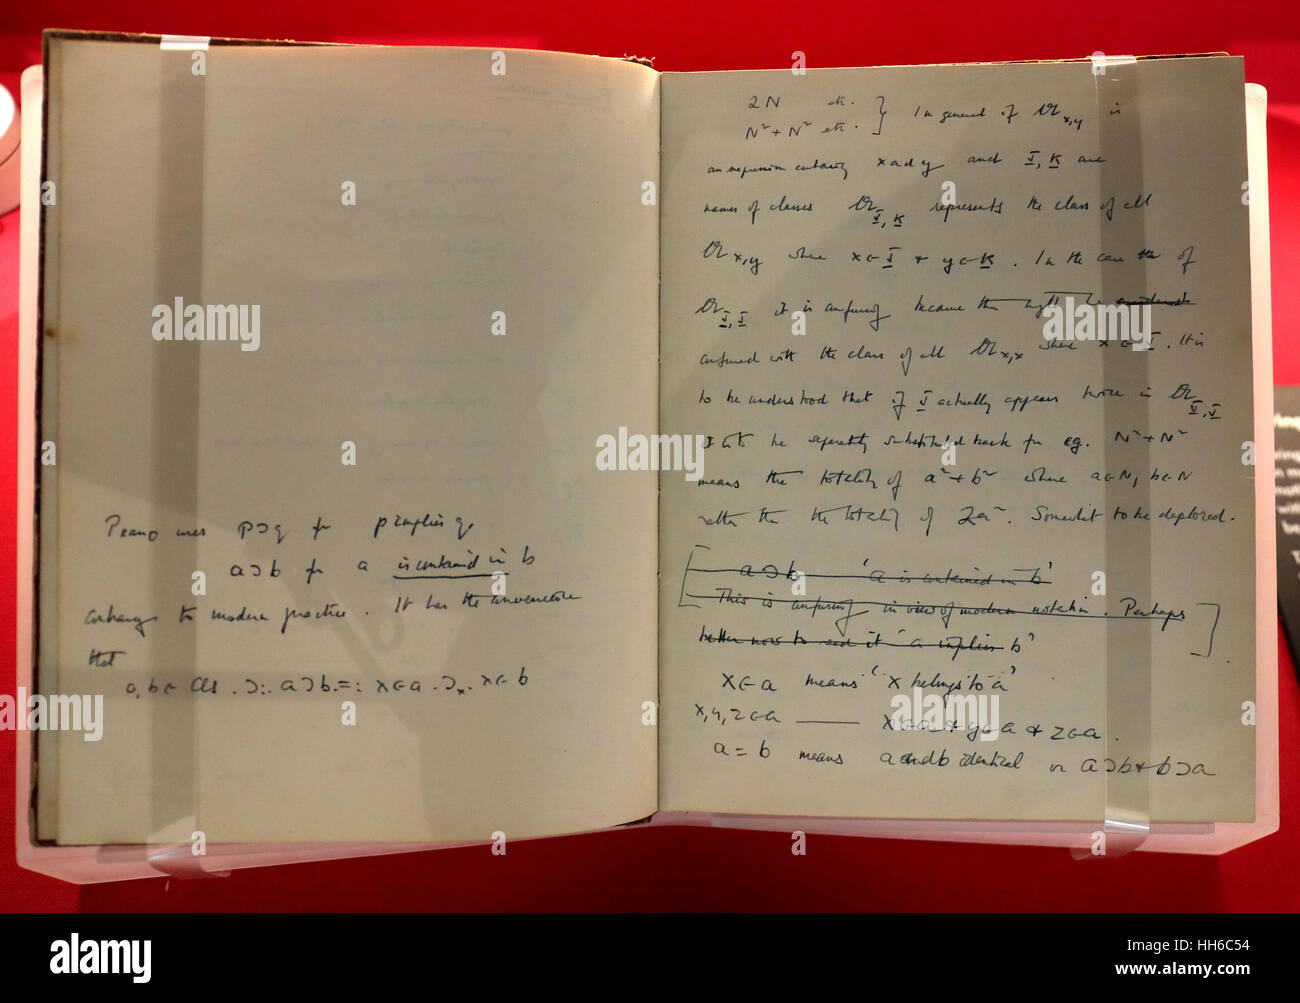 Peano uses p ɔ q for p implies q
a ɔ b for a is contained in b
contrary to modern practice. It has the convenience
that
a, b ϵ Cls . ɔ :. a ɔ b . = : x ϵ a . ɔₓ . x ϵ b
2N etc.
N² + N² etc. } In general if 𝔄 x,y is
an expression containing x and y and I, K are
names of classes 𝔄 I, K represents the class of all
𝔄 x,y where x ϵ I + y ϵ K. In the case the of
𝔄 I, I it is confusing because this might be
confused with the class of all 𝔄 x,x where x ϵ I. It is
to be understood that if I actually appears twice in 𝔄 I, I
I is to be separately substituted back for eg. N² + N²
means the totality of a² + b² where a ϵ N, b ϵ N
rather than the totality of 2a². Somewhat to be deplored.
[ a ɔ b 'a is contained in b'
This is confusing in view of modern notation. Perhaps
better now to read it 'a implies b' ]
x ϵ a means 'x belongs to a'
x, y, z ϵ a —— x ϵ a + y ϵ a + z ϵ a.
a = b means a and b identical or a ɔ b + b ɔ a
alamy
alamy stock photo
HH6C54
www.alamy.com